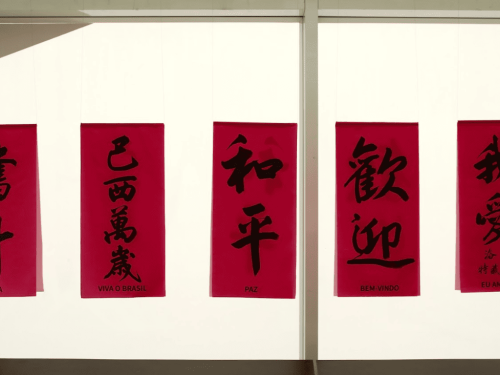 巴西萬歲
VIVA O BRASIL
和平
PAZ
歡迎
BEM-VINDO
我愛
EU